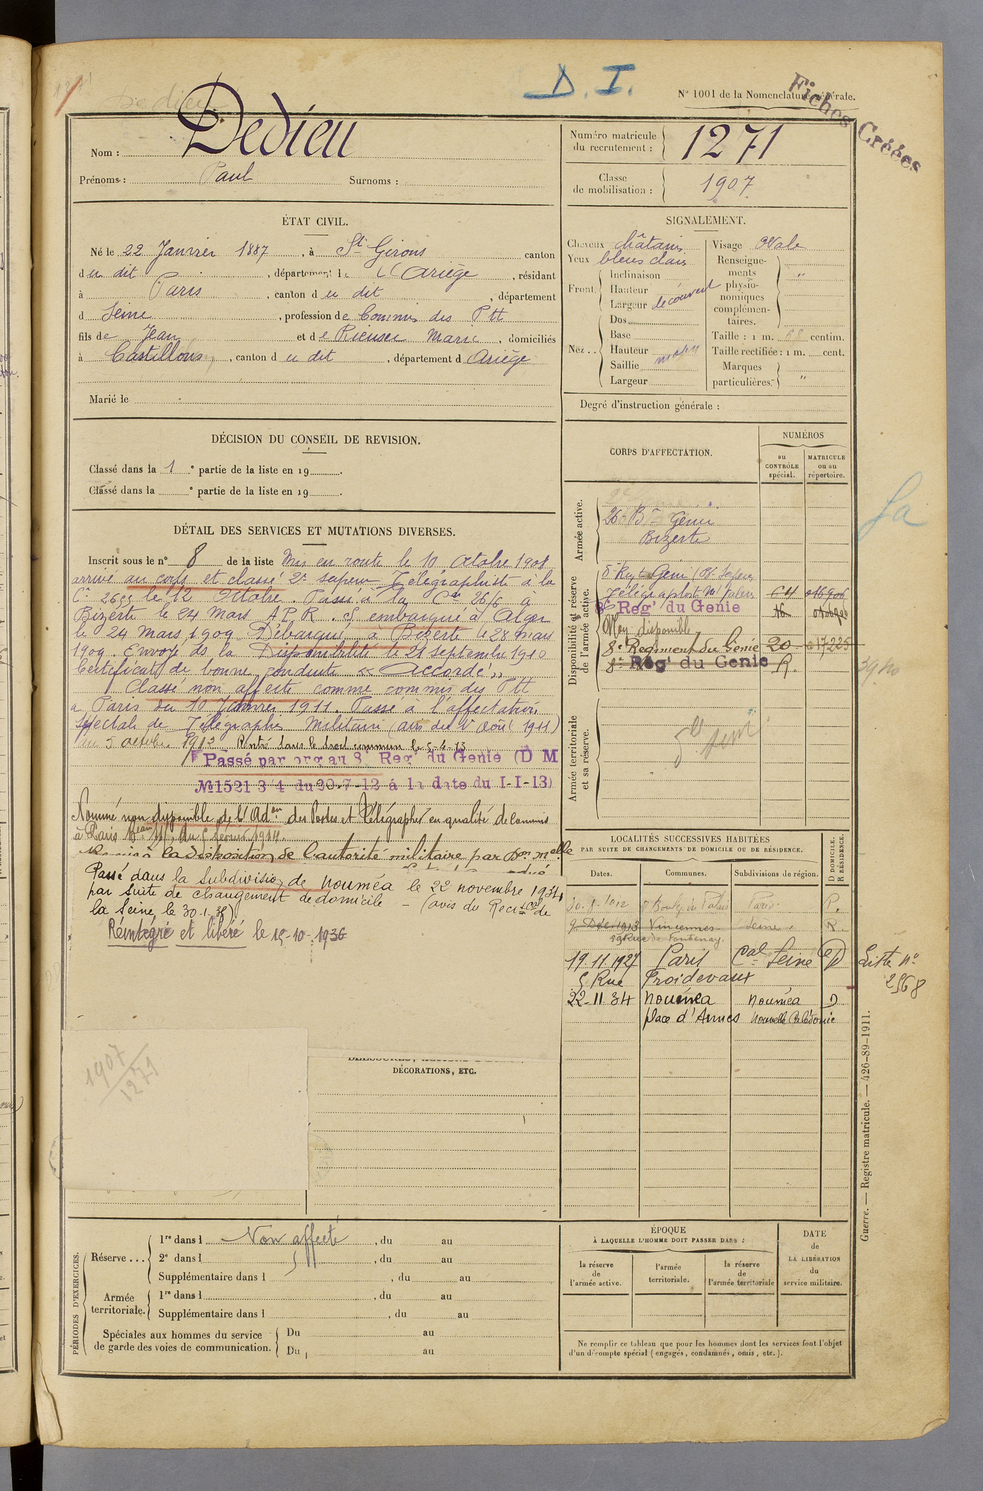 D. I.
N° 1001 de la Nomenclature générale.
Fiches Créées
Nom : Dedieu
Prénoms : Paul Surnoms :
Numéro matricule du recrutement : 1271
Classe de mobilisation : 1907
ÉTAT CIVIL.
Né le 22 Janvier 1887, à St Girons canton
d u dit, département de l'Ariège, résidant
à Paris, canton d u dit, département
d Seine, profession de Commis des Ptt
fils de Jean et de Rieuser Marie, domiciliés
à Castillons, canton d u dit, département d Ariège
Marié le
SIGNALEMENT.
Cheveux châtain
Yeux bleus clair
Front
Inclinaison
Hauteur
Largeur découvert
Nez
Dos
Base
Hauteur
Saillie moyen
Largeur
Visage Ovale
Renseignements physionomiques complémentaires. "
Taille : 1 m. 68 centim.
Taille rectifiée : 1 m. cent.
Marques particulières : "
Degré d'instruction générale :
DÉCISION DU CONSEIL DE REVISION.
Classé dans la 1 e partie de la liste en 19
Classé dans la e partie de la liste en 19
DÉTAIL DES SERVICES ET MUTATIONS DIVERSES.
Inscrit sous le n° 8 de la liste Mis en route le 10 Octobre 1908
arrivé au corps et classé 2e sapeur Télégraphiste à la
Cie le 12 Octobre. Passé à la Cie 26/6 à
Bizerte le 24 Mars A.P.R. S' embarqué à Alger
le 24 mars 1909. Débarqué à Bizerte le 28 mars
1909. Envoyé ds la Disponibilité le 21 Septembre 1910
Certificat de bonne conduite "Accordé"
Classé non affecté comme commis des Ptt
à Paris du 10 Janvier 1911. Passé à l'affectation
spéciale de Télégraphie Militaire (avis du 1er Août 1911)
du 5 octobre 1912 Rentré dans le droit commun le
Passé par org au 8e Reg' du Genie (D M
N° 1521 3/4 du 20-7-12 à la date du 1-1-13)
Nommé non disponible de l'Adon des Postes et Télégraphes en qualité de commis
à Paris
à la disposition de l'autorité militaire par
Passé dans la Subdivision de Nouméa le 22 novembre 1934
par suite de changement de domicile - (avis du Rect de
la Seine le 30.1.35)
Réintégré et libéré le 15-10-1936
CORPS D'AFFECTATION.
NUMÉROS
au CONTRÔLE spécial.
MATRICULE ou au répertoire.
Armée active.
26e Bn Génie
Bizerte
Disponibilité et réserve de l'armée active.
8e Reg' du Genie
Non disponible
8e Regiment du Génie 20 17225
8e Reg' du Genie R.
Armée territoriale et sa réserve.
LOCALITÉS SUCCESSIVES HABITÉES
PAR SUITE DE CHANGEMENTS DE DOMICILE OU DE RÉSIDENCE.
Dates. Communes. Subdivisions de région. D DOMICILE. R RÉSIDENCE.
Paris R.
9 Déc 1913 Vincennes Seine R.
Rue de Fontenay
19-11-1927 Paris Cal Seine D
5 Rue Froidevaux
22-11-34 Nouméa Nouméa D
place d'Armes Nouvelle Calédonie
Liste N°
2568
1907
1271
DÉCORATIONS, ETC.
PÉRIODES D'EXERCICES.
Réserve...
1re dans l Non affecté, du au
2e dans l, du au
Supplémentaire dans l, du au
Armée territoriale.
1re dans l, du au
Supplémentaire dans l, du au
Spéciales aux hommes du service de garde des voies de communication.
Du au
Du au
ÉPOQUE
À LAQUELLE L'HOMME DOIT PASSER DANS :
la réserve de l'armée active.
l'armée territoriale.
la réserve de l'armée territoriale
DATE DE LA LIBÉRATION du service militaire.
Ne remplir ce tableau que pour les hommes dont les services font l'objet
d'un décompte spécial (engagés, condamnés, omis, etc.).
Guerre. — Registre matricule. — 426-89-1911.